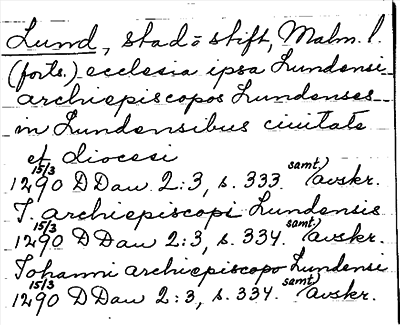 Lund, stad o stift, Malm. l.
(forts.) ecclesia ipsa Lundensi
archiepiscopos Lundenses
in Lundensibus ciuitate
et diocesi
15/3 1290 D Dan 2:3, s. 333. samt.) avskr.
T. archiepiscopi Lundensis
15/3 1290 D Dan 2:3, s. 334. samt.) avskr.
Johanni archiepiscopo Lundensi
15/3 1290 D Dan 2:3, s. 334. samt.) avskr.